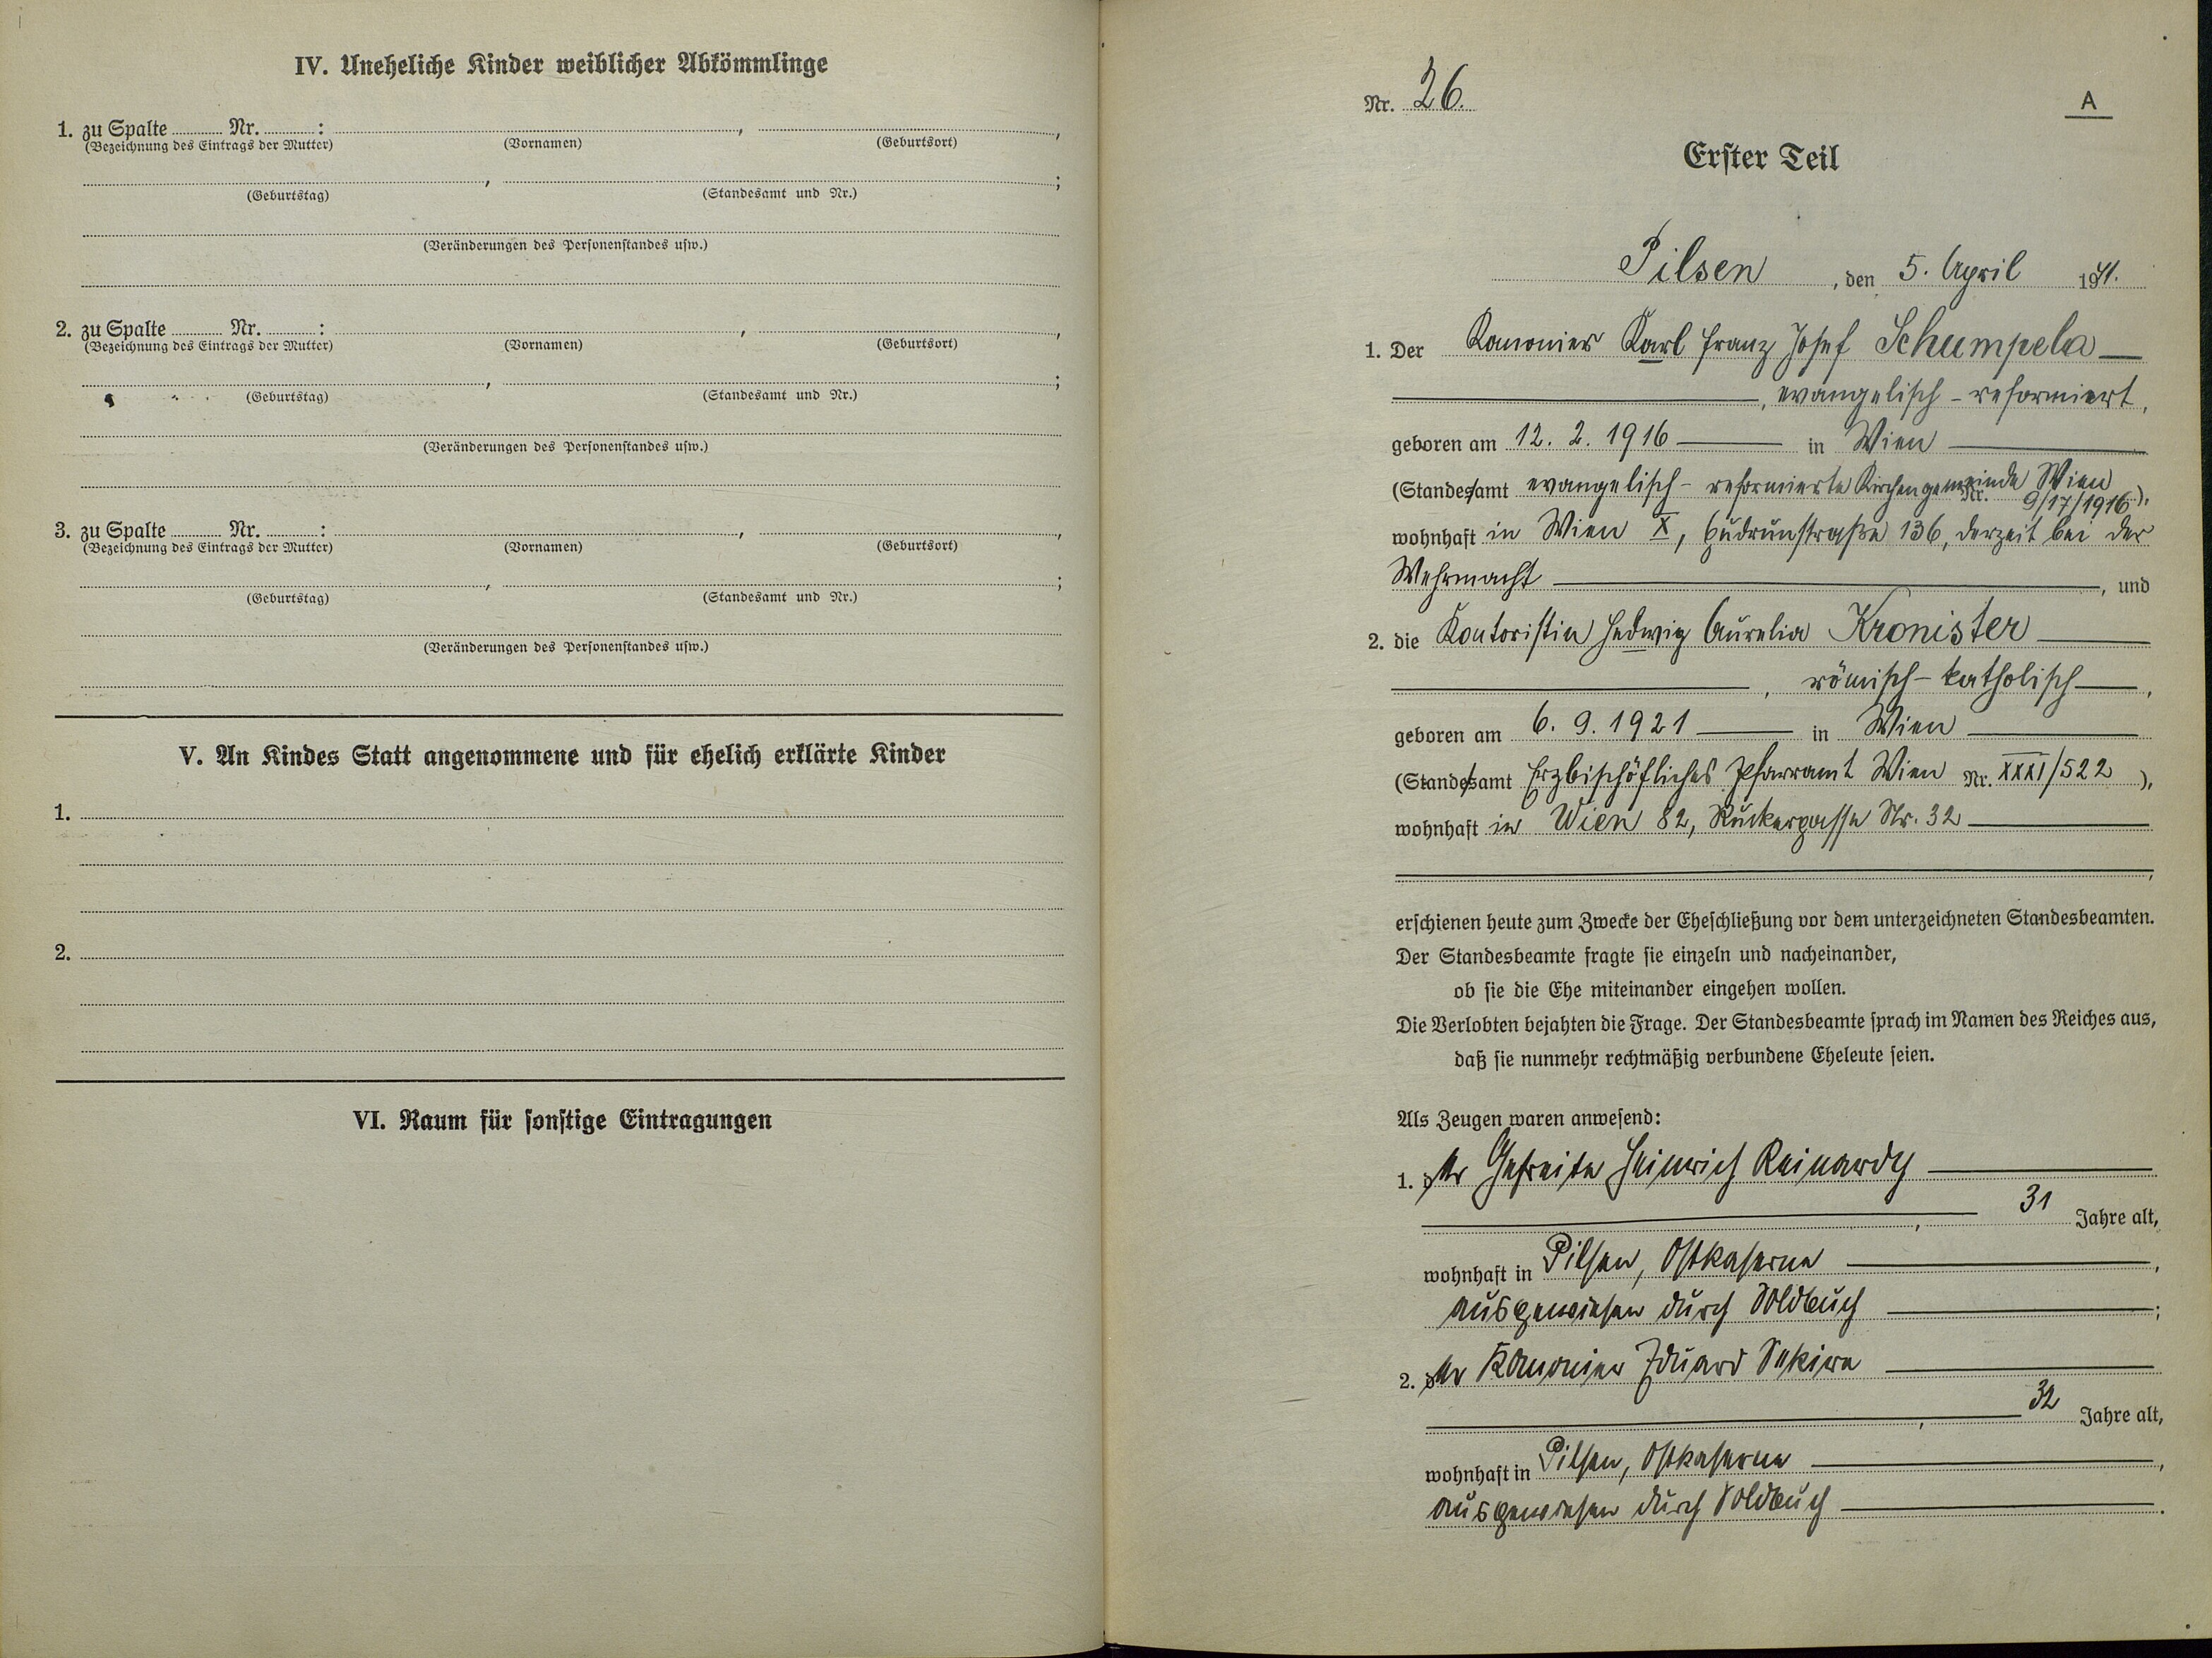 IV. Uneheliche Kinder weiblicher Abkömmlinge
1. zu Spalte ......... Nr. ......... : , ,
(Bezeichnung des Eintrags der Mutter) (Vornamen) (Geburtsort)
, ;
(Geburtstag) (Standesamt und Nr.)
(Veränderungen des Personenstandes usw.)
2. zu Spalte ......... Nr. ......... : , ,
(Bezeichnung des Eintrags der Mutter) (Vornamen) (Geburtsort)
, ;
(Geburtstag) (Standesamt und Nr.)
(Veränderungen des Personenstandes usw.)
3. zu Spalte ......... Nr. ......... : , ,
(Bezeichnung des Eintrags der Mutter) (Vornamen) (Geburtsort)
, ;
(Geburtstag) (Standesamt und Nr.)
(Veränderungen des Personenstandes usw.)
V. An Kindes Statt angenommene und für ehelich erklärte Kinder
1.
2.
VI. Raum für sonstige Eintragungen
Nr. 26.
A
Erster Teil
Pilsen, den 5. April 1941.
1. Der Kanonier Karl Franz Josef Schumpela
, evangelisch-reformiert,
geboren am 12. 2. 1916 in Wien
(Standesamt evangelisch-reformierte Kirchengemeinde Wien
Nr. 9/17/1916),
wohnhaft in Wien X, Gudrunstraße 136, derzeit bei der
Wehrmacht, und
2. die Kontoristin Hedwig Aurelia Kronister
, römisch-katholisch,
geboren am 6. 9. 1921 in Wien
(Standesamt Erzbischöfliches Pfarramt Wien Nr. XXXI/522),
wohnhaft in Wien 82, Rückergasse Nr. 32
,
erschienen heute zum Zwecke der Eheschließung vor dem unterzeichneten Standesbeamten.
Der Standesbeamte fragte sie einzeln und nacheinander,
ob sie die Ehe miteinander eingehen wollen.
Die Verlobten bejahten die Frage. Der Standesbeamte sprach im Namen des Reiches aus,
daß sie nunmehr rechtmäßig verbundene Eheleute seien.
Als Zeugen waren anwesend:
1. der Gefreite Heinrich Reinardy
, 31 Jahre alt,
wohnhaft in Pilsen, Ostkaserne,
ausgewiesen durch Soldbuch;
2. der Kanonier Eduard
, 32 Jahre alt,
wohnhaft in Pilsen, Ostkaserne,
ausgewiesen durch Soldbuch.